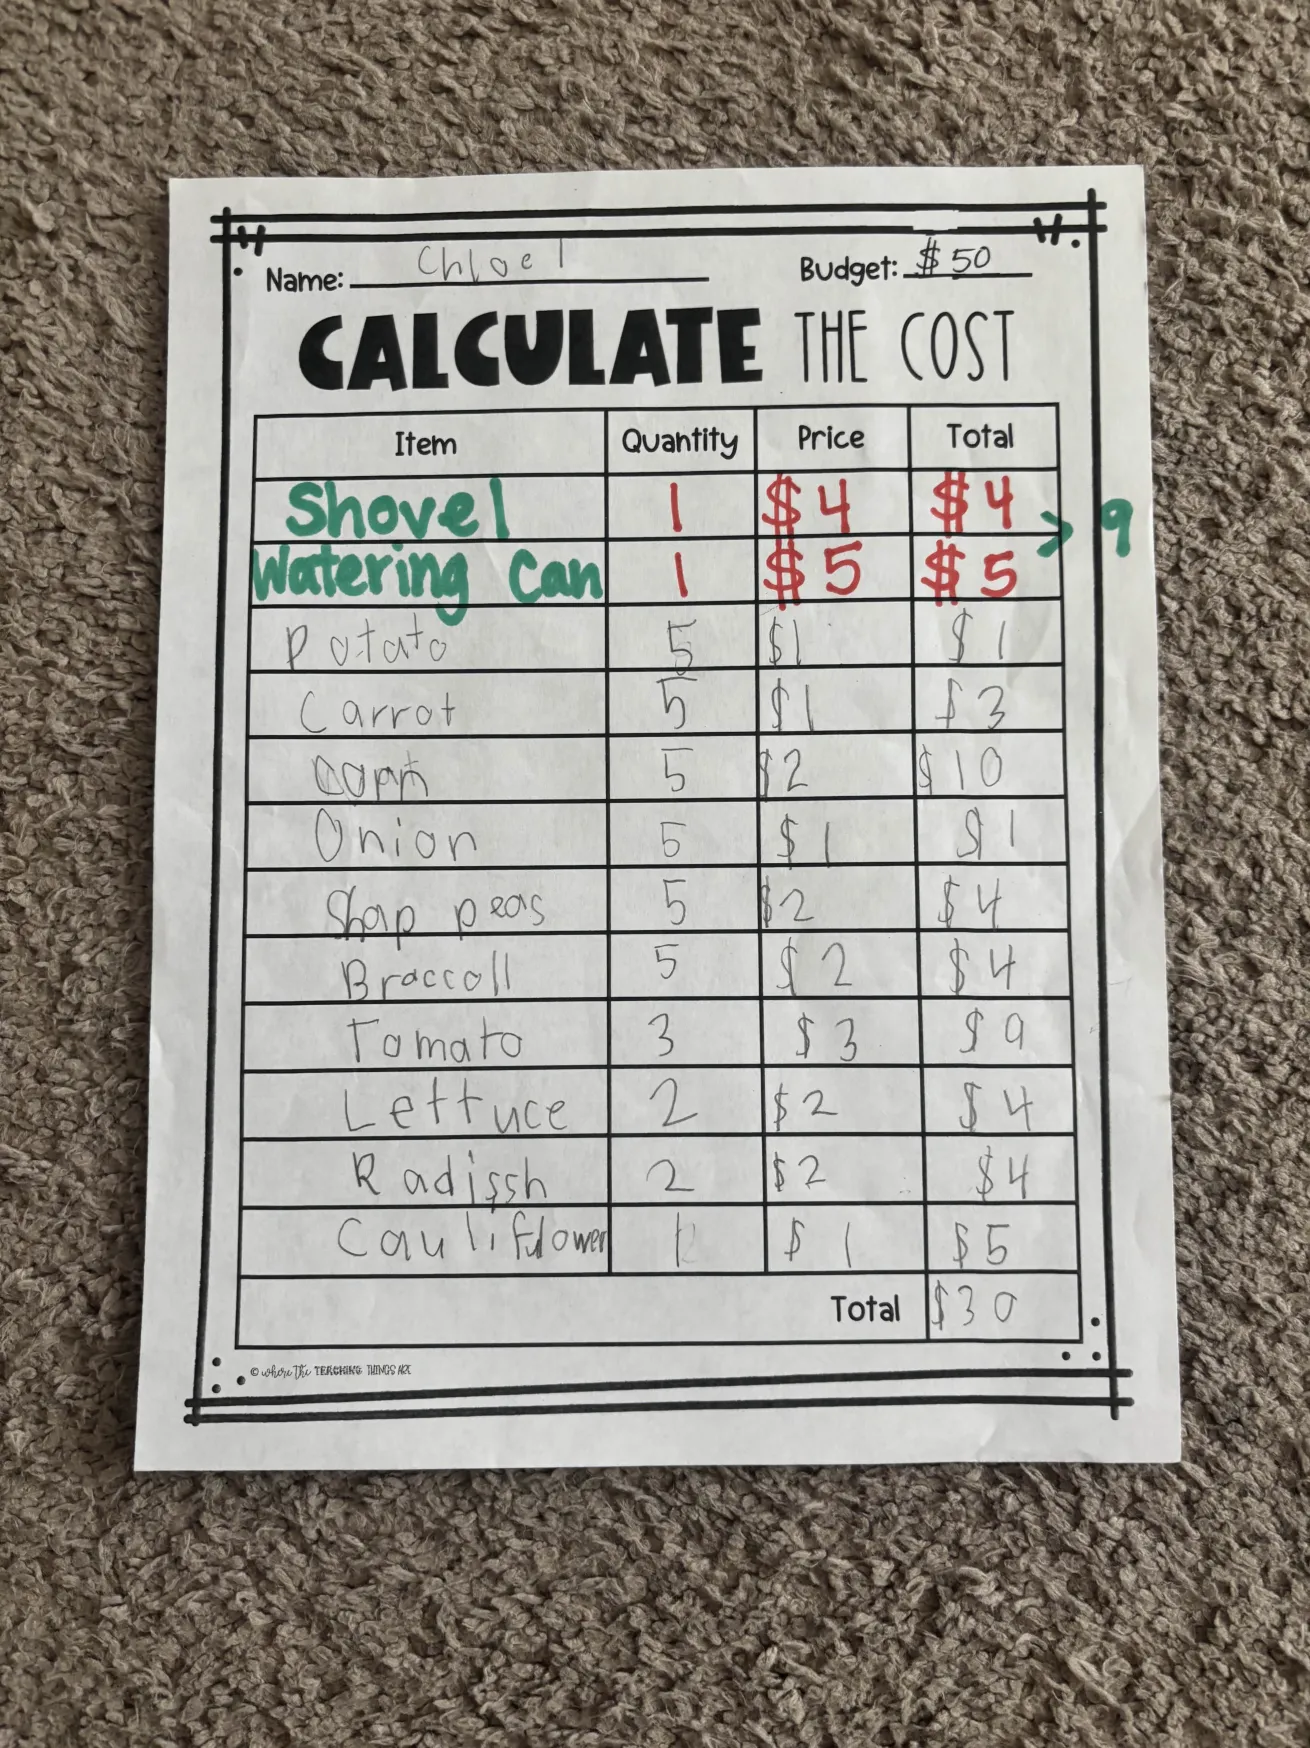 Name: Chloe l Budget: $50
CALCULATE THE COST
Item Quantity Price Total
Shovel 1 $4 $4
> 9
Watering Can 1 $5 $5
Potato 5 $1 $1
Carrot 5 $1 $3
5 $2 $10
Onion 5 $1 $1
Snap peas 5 $2 $4
Braccoll 5 $2 $4
Tomato 3 $3 $9
Lettuce 2 $2 $4
Radissh 2 $2 $4
Cauliflower $1 $5
Total $30
© where the TEACHING THINGS ARE